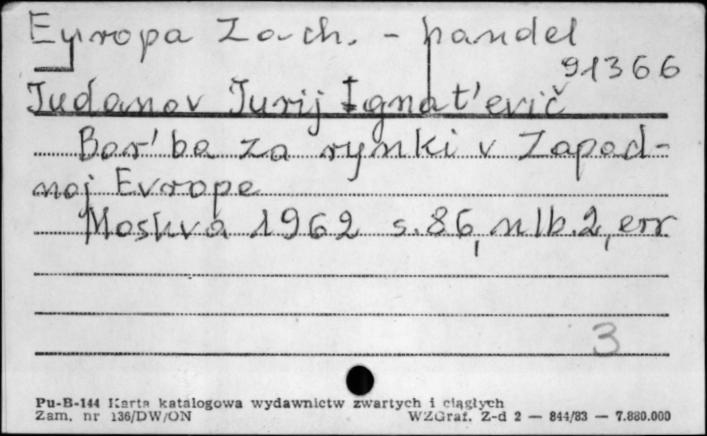 Europa Zach. - handel
91366
Judanov Jurij Ignat'evič
Bor'ba za rynki v Zapad-
noj Evrope
Moskva 1962 s.86, nlb.2, err
3
Pu-B-144 Karta katalogowa wydawnictw zwartych i ciągłych
Zam. nr 136/DW/ON WZGraf. Z-d 2 — 844/83 — 7.880.000